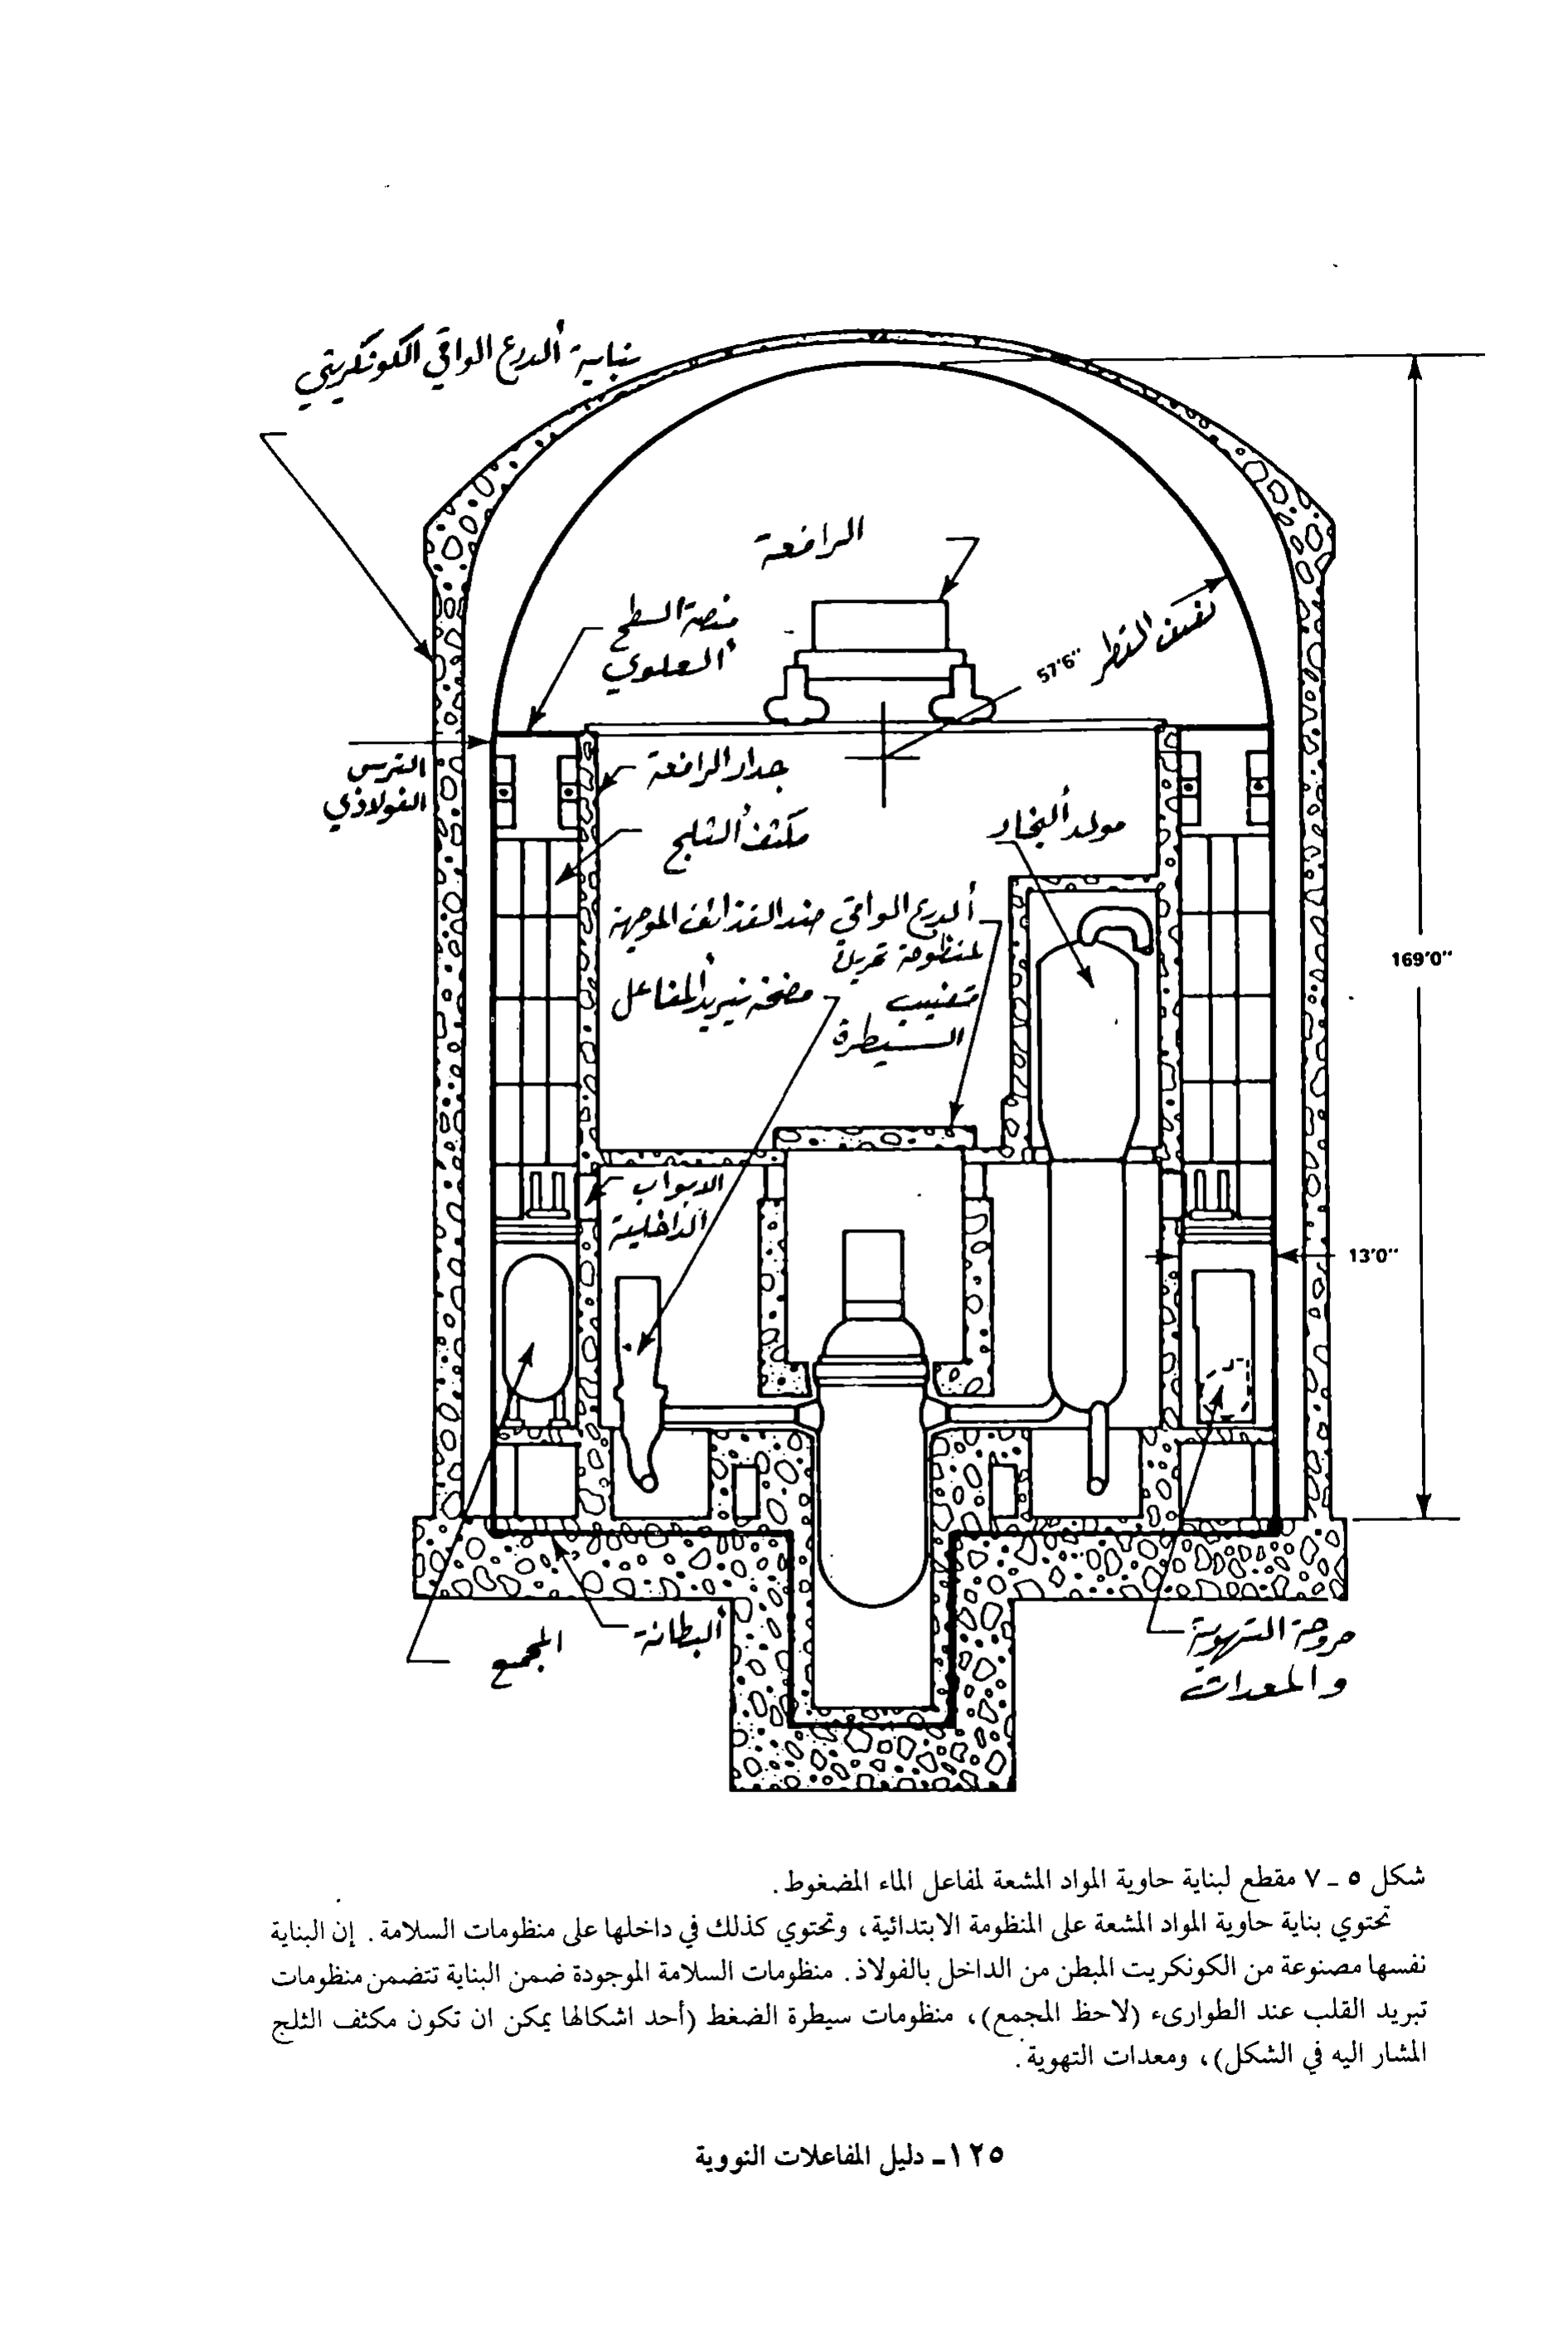 بناية الدرع الواقي الكونكريتي
الرافعة
منصة السطح
العلوي
نصف القطر
57'6"
الترس
الفولاذي
جدار الرافعة
مكثف الثلج
مولد البخار
الدرع الواقي ضد القذائف الموجهة
لمنظومة تحريك
قضيب
السيطرة
مضخة تبريد المفاعل
169'0"
الابواب
الداخلية
13'0"
البطانة
المجمع
مروحة التهوية
والمعدات
شكل ٥ - ٧ مقطع لبناية حاوية المواد المشعة لمفاعل الماء المضغوط.
تحتوي بناية حاوية المواد المشعة على المنظومة الابتدائية، وتحتوي كذلك في داخلها على منظومات السلامة. إن البناية
نفسها مصنوعة من الكونكريت المبطن من الداخل بالفولاذ. منظومات السلامة الموجودة ضمن البناية تتضمن منظومات
تبريد القلب عند الطوارىء (لاحظ المجمع)، منظومات سيطرة الضغط (أحد اشكالها يمكن ان تكون مكثف الثلج
المشار اليه في الشكل)، ومعدات التهوية.
١٢٥ـ دليل المفاعلات النووية